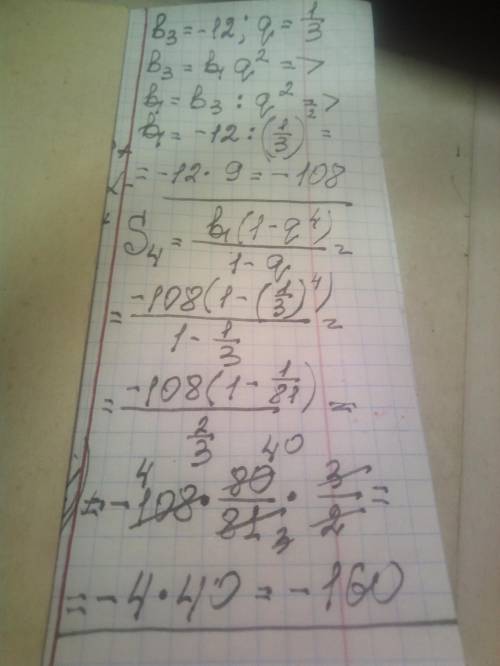 b₃ = -12; q = 1/3
b₃ = b₁ q² = >
b₁ = b₃ : q² = >
b₁ = -12 : (1/3)² =
= -12 · 9 = -108
S₄ = b₁(1 - q⁴)/1 - q =
= -108(1 - (1/3)⁴)/1 - 1/3 =
= -108(1 - 1/81)/2/3 =
4 40
= - 108 · 80/81 · 3/2 =
3
= - 4 · 40 = - 160